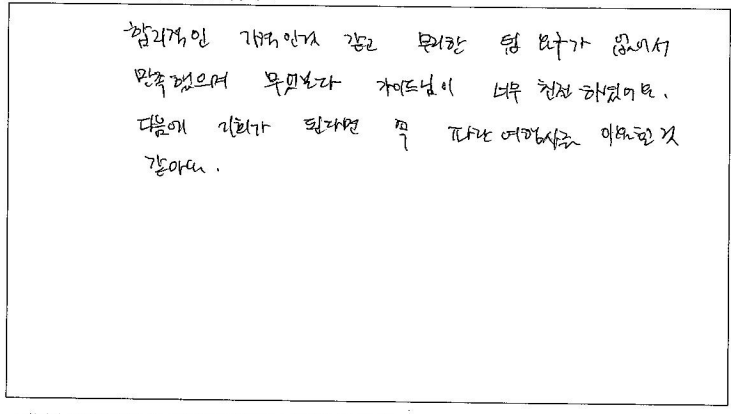 합리적인 가격인것 같고 무리한 팁 요구가 없어서
만족했으며 무엇보다 가이드님이 너무 친절하셨어요.
다음에 기회가 된다면 꼭 파란여행사를 이용할 것
같아요.